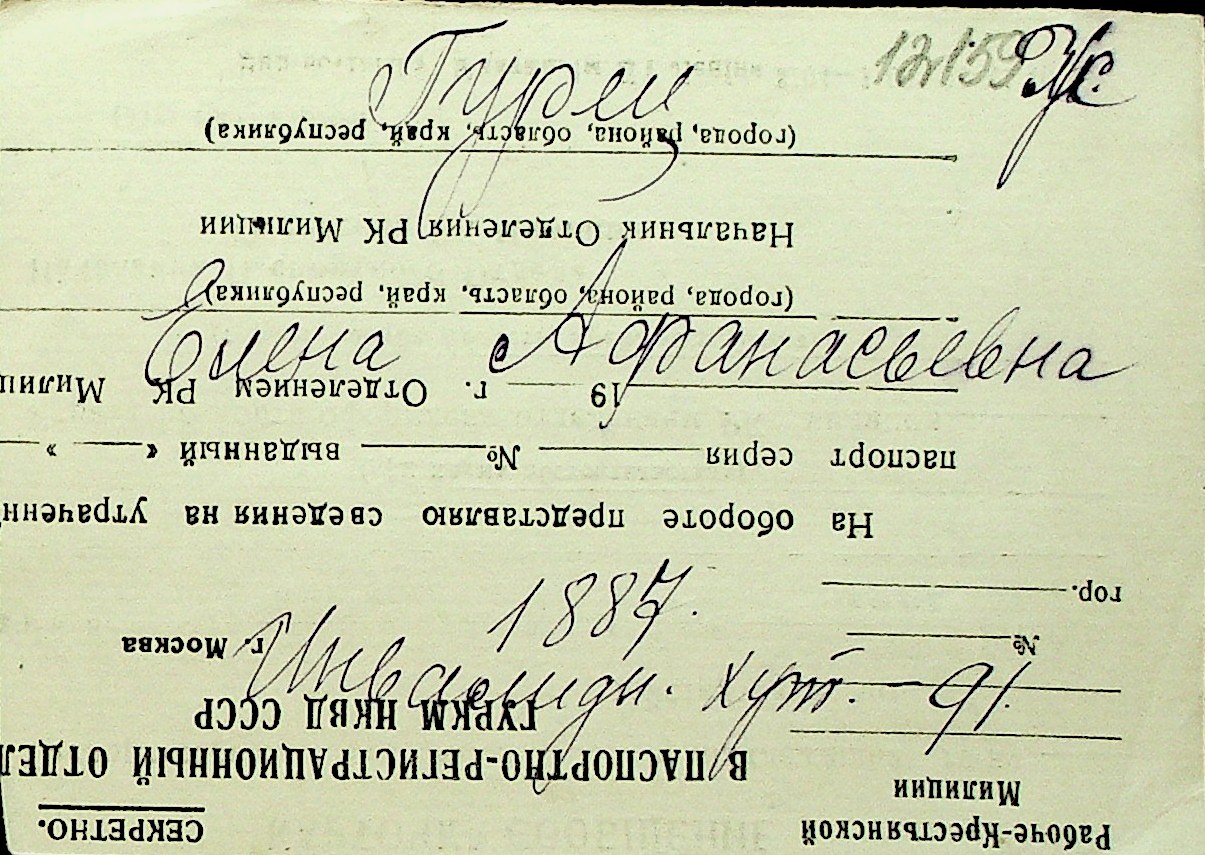 Рус.
Гурец
Елена Афанасьевна
1887.
Инвалидн. хут. — 91.
Рабоче-Крестьянской
Милиции
СЕКРЕТНО.
В ПАСПОРТНО-РЕГИСТРАЦИОННЫЙ ОТДЕЛ
ГУРКМ НКВД СССР
г. Москва
№
гор.
На обороте представляю сведения на утраченн
паспорт серия № выданный « »
19 г. Отделением РК Милиц
(города, района, область, край, республика)
Начальник Отделения РК Милиции
(города, района, область, край, республика)